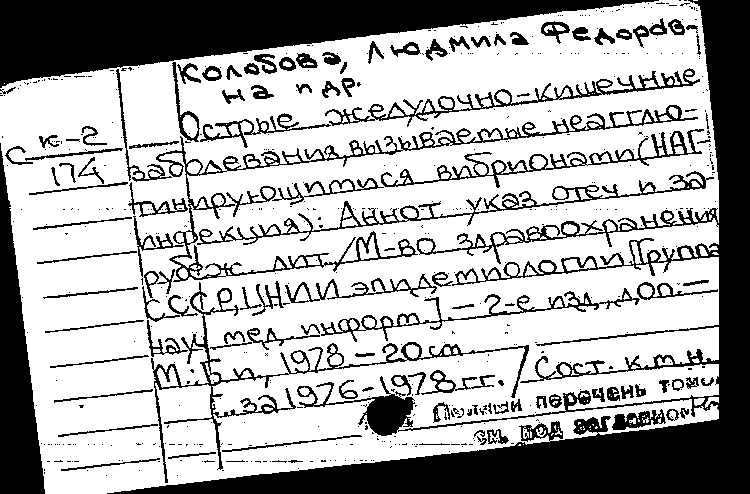 Колобова, Людмила Федоров-
на и др.
Острые желудочно-кишечные
С К-2
174
заболевания, вызываемые неагглю-
тинирующимися вибрионами (НАГ-
инфекция): Аннот. указ отеч и за-
рубеж. лит. / М-во здравоохранения
СССР, ЦНИИ эпидемиологии [Группа
науч мед. информ.]. — 2-е изд., доп. —
М.: Б и., 1978. — 20 см.
[.. за 1976-1978 гг. / Сост. к.м.н.
Полный перечень томов
см. под заглавием